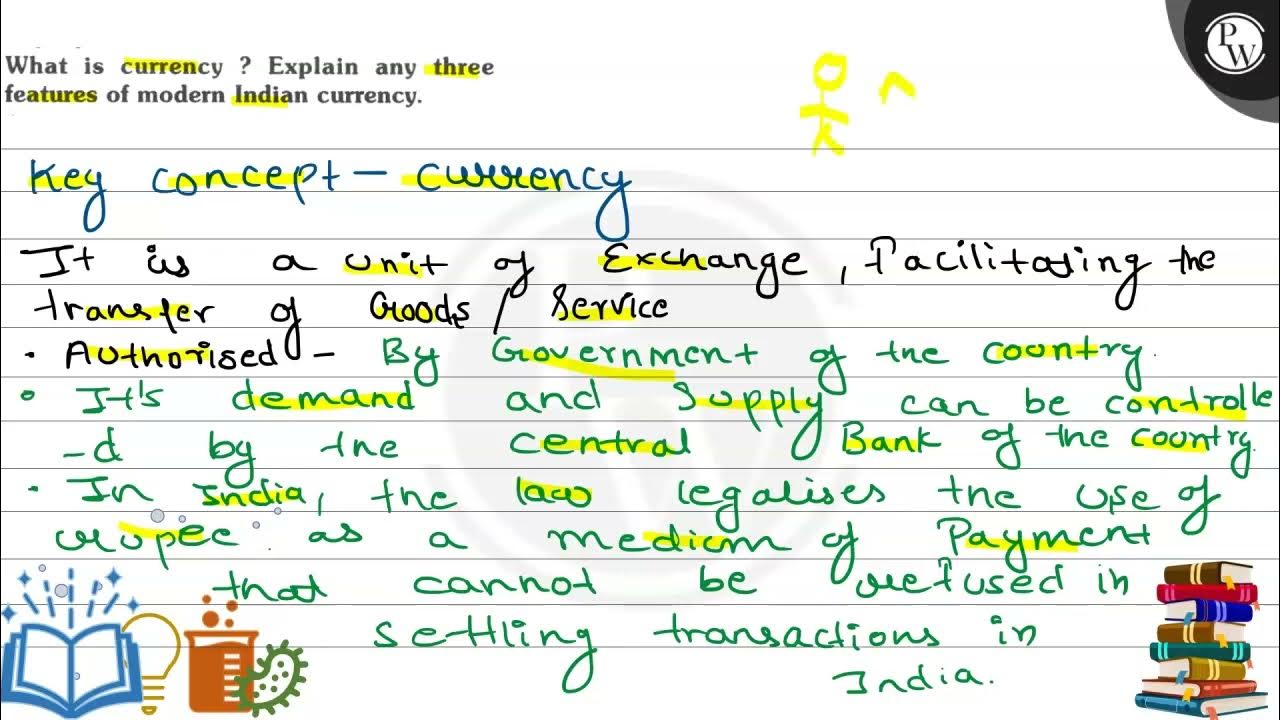 What is currency ? Explain any three
features of modern Indian currency.
PW
Key concept - currency
It is a unit of Exchange, Facilitating the
transfer of Goods / Service
• Authorised - By Government of the country.
• It's demand and Supply can be controlle
-d by the central Bank of the country.
• In India, the law legalises the use of
rupee as a medium of Payment
that cannot be refused in
settling transactions in
India.